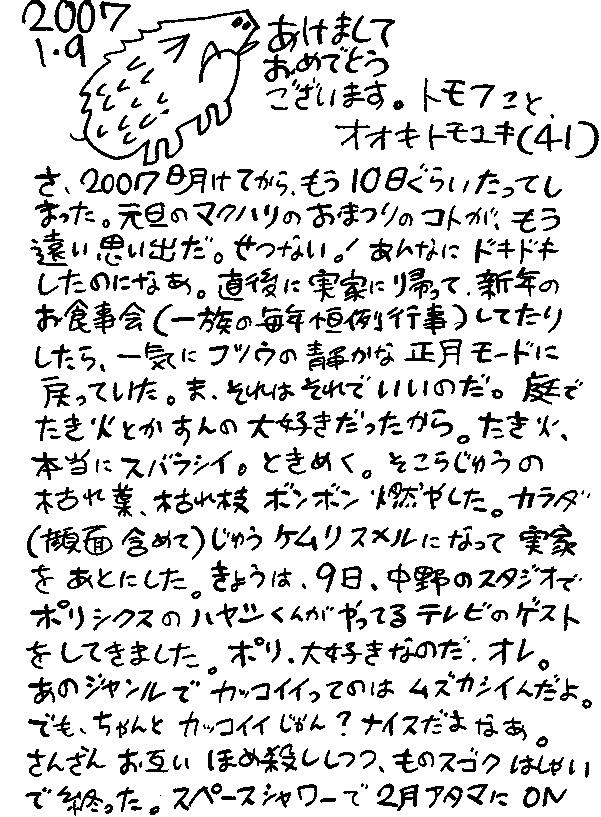 2007
1.9
あけまして
おめでとう
ございます。トモフこと、
オオキトモユキ(41)
さ、2007日月けてから、もう10日ぐらいたってし
まった。元旦のマクハリのおまつりのコトが、もう
遠い思い出だ。せつない。! あんなにドキドキ
したのになあ。直後に実家に帰って、新年の
お食事会(一族の毎年恒例行事)してたり
したら、一気にフツウの静かな正月モードに
戻っていた。ま、それはそれでいいのだ。庭で
たき火とかすんの大好きだったから。たき火、
本当にスバラシイ。ときめく。そこらじゅうの
枯れ葉、枯れ枝ボンボン燃やした。カラダ
(顔面含めて)じゅうケムリスメルになって実家
をあとにした。きょうは、9日、中野のスタジオで
ポリシクスのハヤシくんがやってるテレビのゲスト
をしてきました。ポリ、大好きなのだ、オレ。
あのジャンルでカッコイイってのはムズカシイんだよ。
でも、ちゃんとカッコイイじゃん?ナイスだよなあ。
さんざんお互いほめ殺ししつつ、ものスゴクはしゃい
で終った。スペースシャワーで2月アタマにON